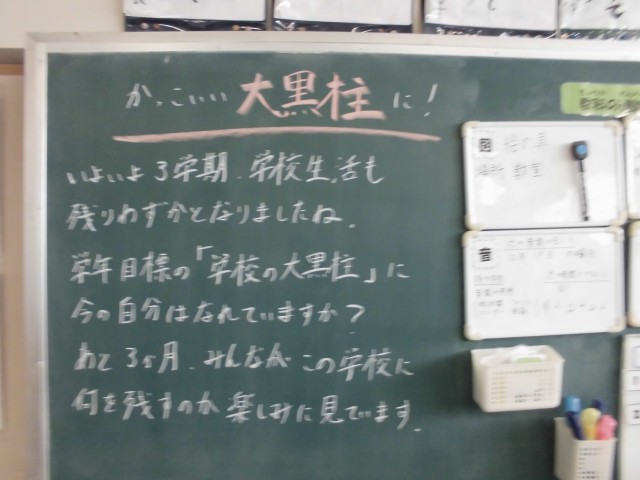 かっこいい大黒柱に!
いよいよ3学期、学校生活も
残りわずかとなりましたね。
学年目標の「学校の大黒柱」に
今の自分はなれていますか?
あと3ヶ月、みんながこの学校に
何を残すのか楽しみに見ています。
図
音